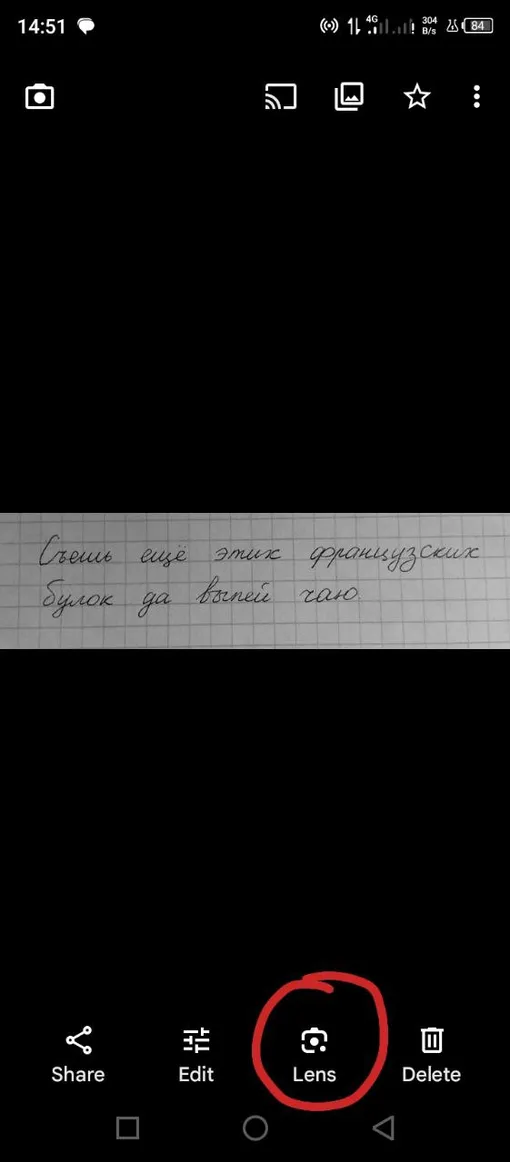 14:51
4G
304
B/s
84
Съешь ещё этих французских
булок да выпей чаю.
Share
Edit
Lens
Delete